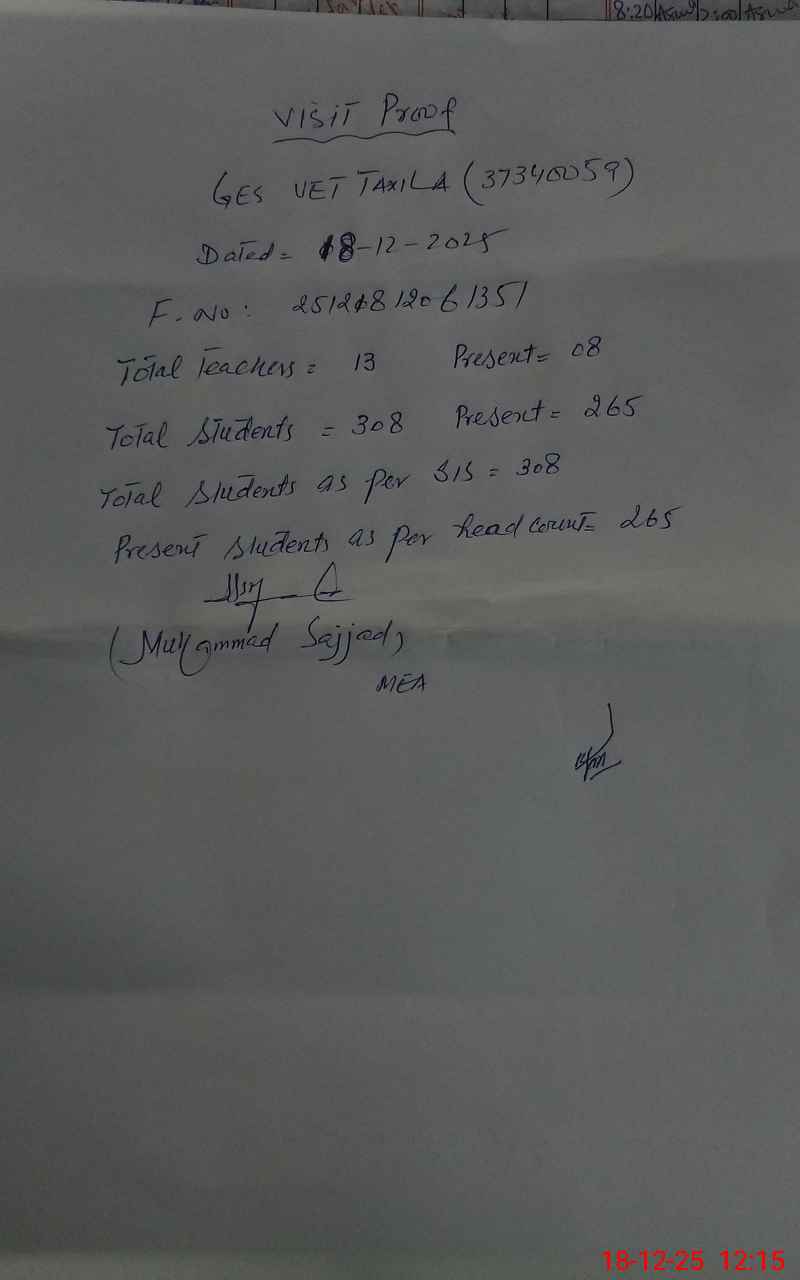 8:20 Asma 2:00 Asma
Visit Proof
GES VET TAXILA (37340059)
Dated = 18-12-2025
F. No: 25121812061351
Total Teachers = 13 Present = 08
Total Students = 308 Present = 265
Total Students as per SIS = 308
Present Students as per head count = 265
(Muhammad Sajjad)
MEA
18-12-25 12:15